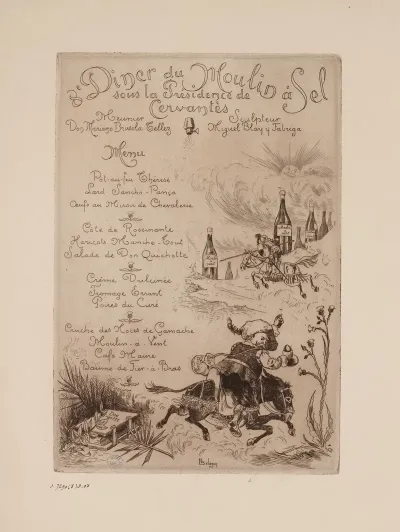 Diner du Moulin à Sel
sous la Présidence de
Cervantès
Meunier
Don Mariano
Sculpteur
Miguel Blay y Fabriga
Menu
Pot-au-feu Thérèse
Lard Sancho-Pança
Œufs au Miroir de Chevalerie
Côte de Rossinante
Haricots Manche-Court
Salade de Don Quichotte
Crème Dulcinée
Fromage Errant
Poires du Curé
Cruche des Noces de Gamache
Moulin-à-Vent
Café Maure
Baume de Fier-à-Bras